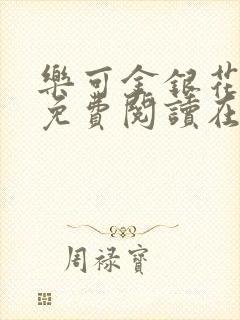 樂可金銀花
免費閱讀在
周禄寶